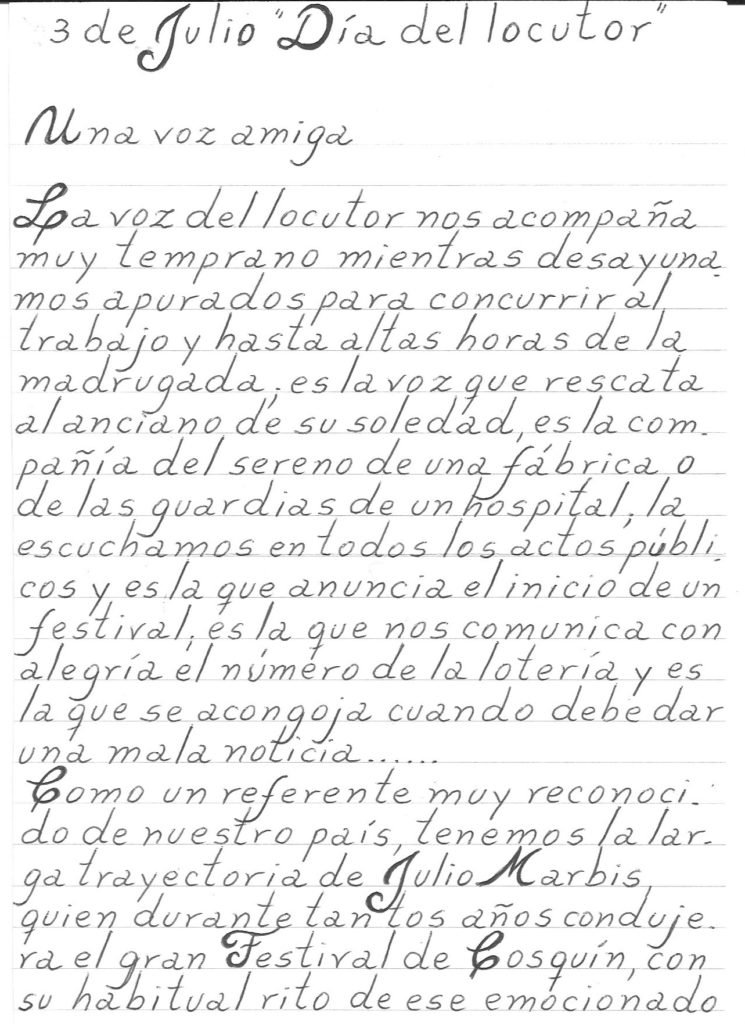 3 de Julio "Día del locutor"
Una voz amiga
La voz del locutor nos acompaña
muy temprano mientras desayuna-
mos apurados para concurrir al
trabajo y hasta altas horas de la
madrugada; es la voz que rescata
al anciano de su soledad, es la com-
pañía del sereno de una fábrica o
de las guardias de un hospital; la
escuchamos en todos los actos públi-
cos y es la que anuncia el inicio de un
festival; es la que nos comunica con
alegría el número de la lotería y es
la que se acongoja cuando debe dar
una mala noticia.......
Como un referente muy reconoci-
do de nuestro país, tenemos la lar-
ga trayectoria de Julio Marbis,
quien durante tantos años conduje-
ra el gran Festival de Cosquín, con
su habitual rito de ese emocionado